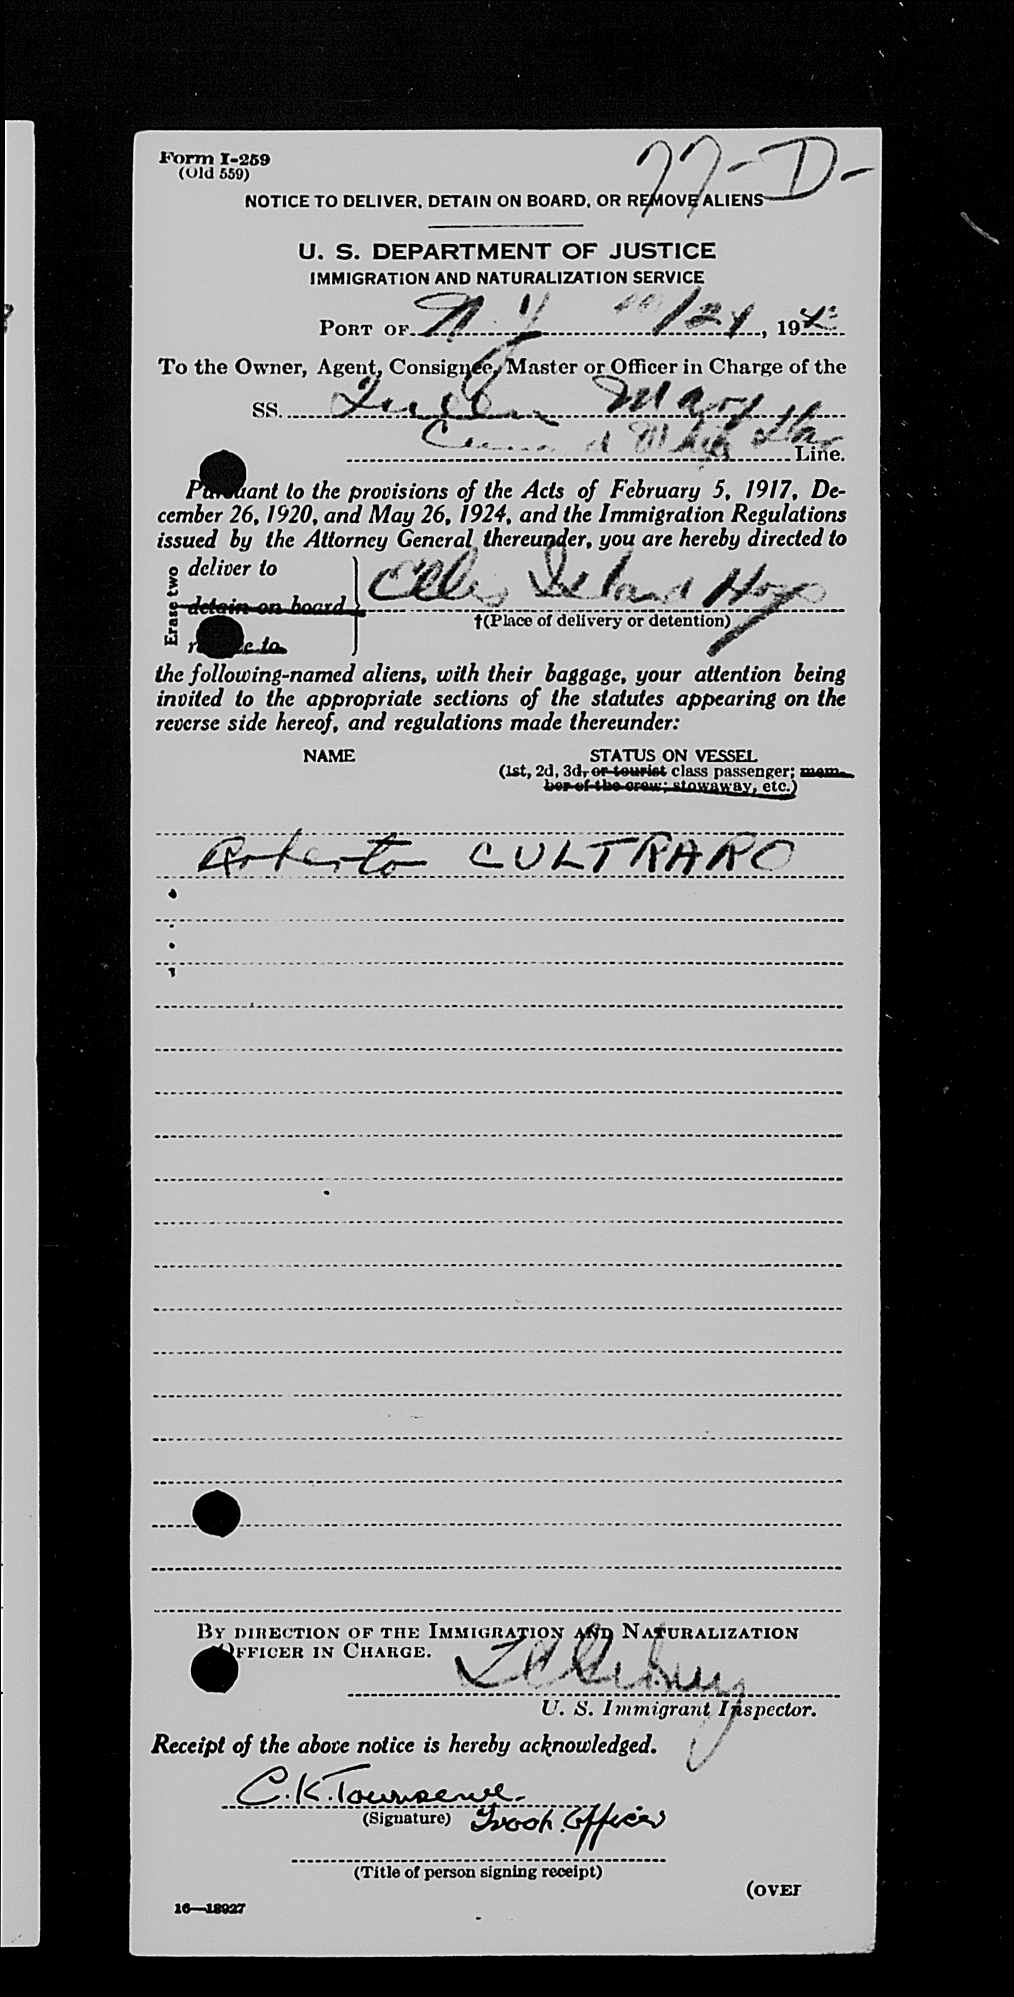 Form I-259
(Old 559)
77-D-
NOTICE TO DELIVER, DETAIN ON BOARD, OR REMOVE ALIENS
U. S. DEPARTMENT OF JUSTICE
IMMIGRATION AND NATURALIZATION SERVICE
PORT OF N.Y. /24, 194
To the Owner, Agent, Consignee, Master or Officer in Charge of the
SS. Queen Mary
Cunard White Star Line.
Pursuant to the provisions of the Acts of February 5, 1917, De-
cember 26, 1920, and May 26, 1924, and the Immigration Regulations
issued by the Attorney General thereunder, you are hereby directed to
Erase two
deliver to
detain on board
Ellis Island Hosp
to
†(Place of delivery or detention)
the following-named aliens, with their baggage, your attention being
invited to the appropriate sections of the statutes appearing on the
reverse side hereof, and regulations made thereunder:
NAME STATUS ON VESSEL
(1st, 2d, 3d, or tourist class passenger; mem-
ber of the crew; stowaway, etc.)
Roberto CULTRARO
BY DIRECTION OF THE IMMIGRATION AND NATURALIZATION
OFFICER IN CHARGE.
U. S. Immigrant Inspector.
Receipt of the above notice is hereby acknowledged.
C.K. Townsend.
(Signature) Troop. Officer
(Title of person signing receipt)
(OVER
16—18927